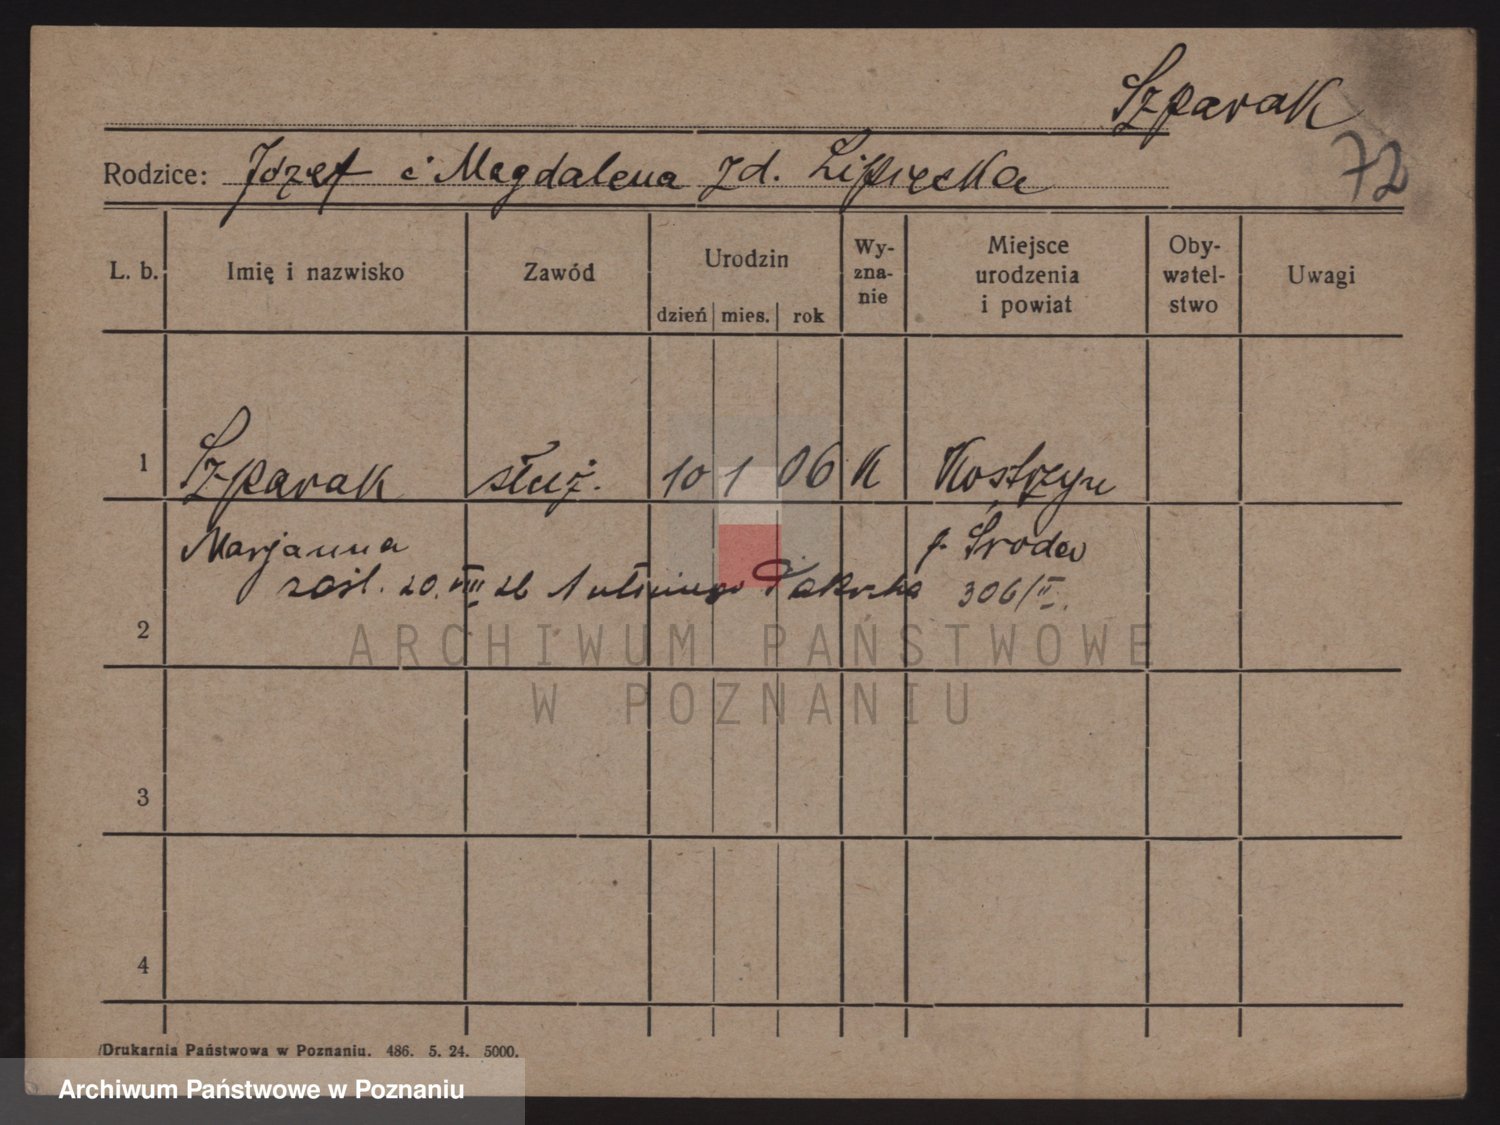 Szparak
72
Rodzice: Józef i Magdalena zd. Lipięcka
L. b. Imię i nazwisko Zawód Urodzin dzień mies. rok Wy-zna-nie Miejsce urodzenia i powiat Oby-watel-stwo Uwagi
1 Szparak służ. 10 1 06 K Kostrzyn
Marjanna p. Środa
zaśl. 20. VIII 26 Antoniego 306/II.
2
ARCHIWUM PAŃSTWOWE
W POZNANIU
3
4
Drukarnia Państwowa w Poznaniu. 486. 5. 24. 5000.
Archiwum Państwowe w Poznaniu